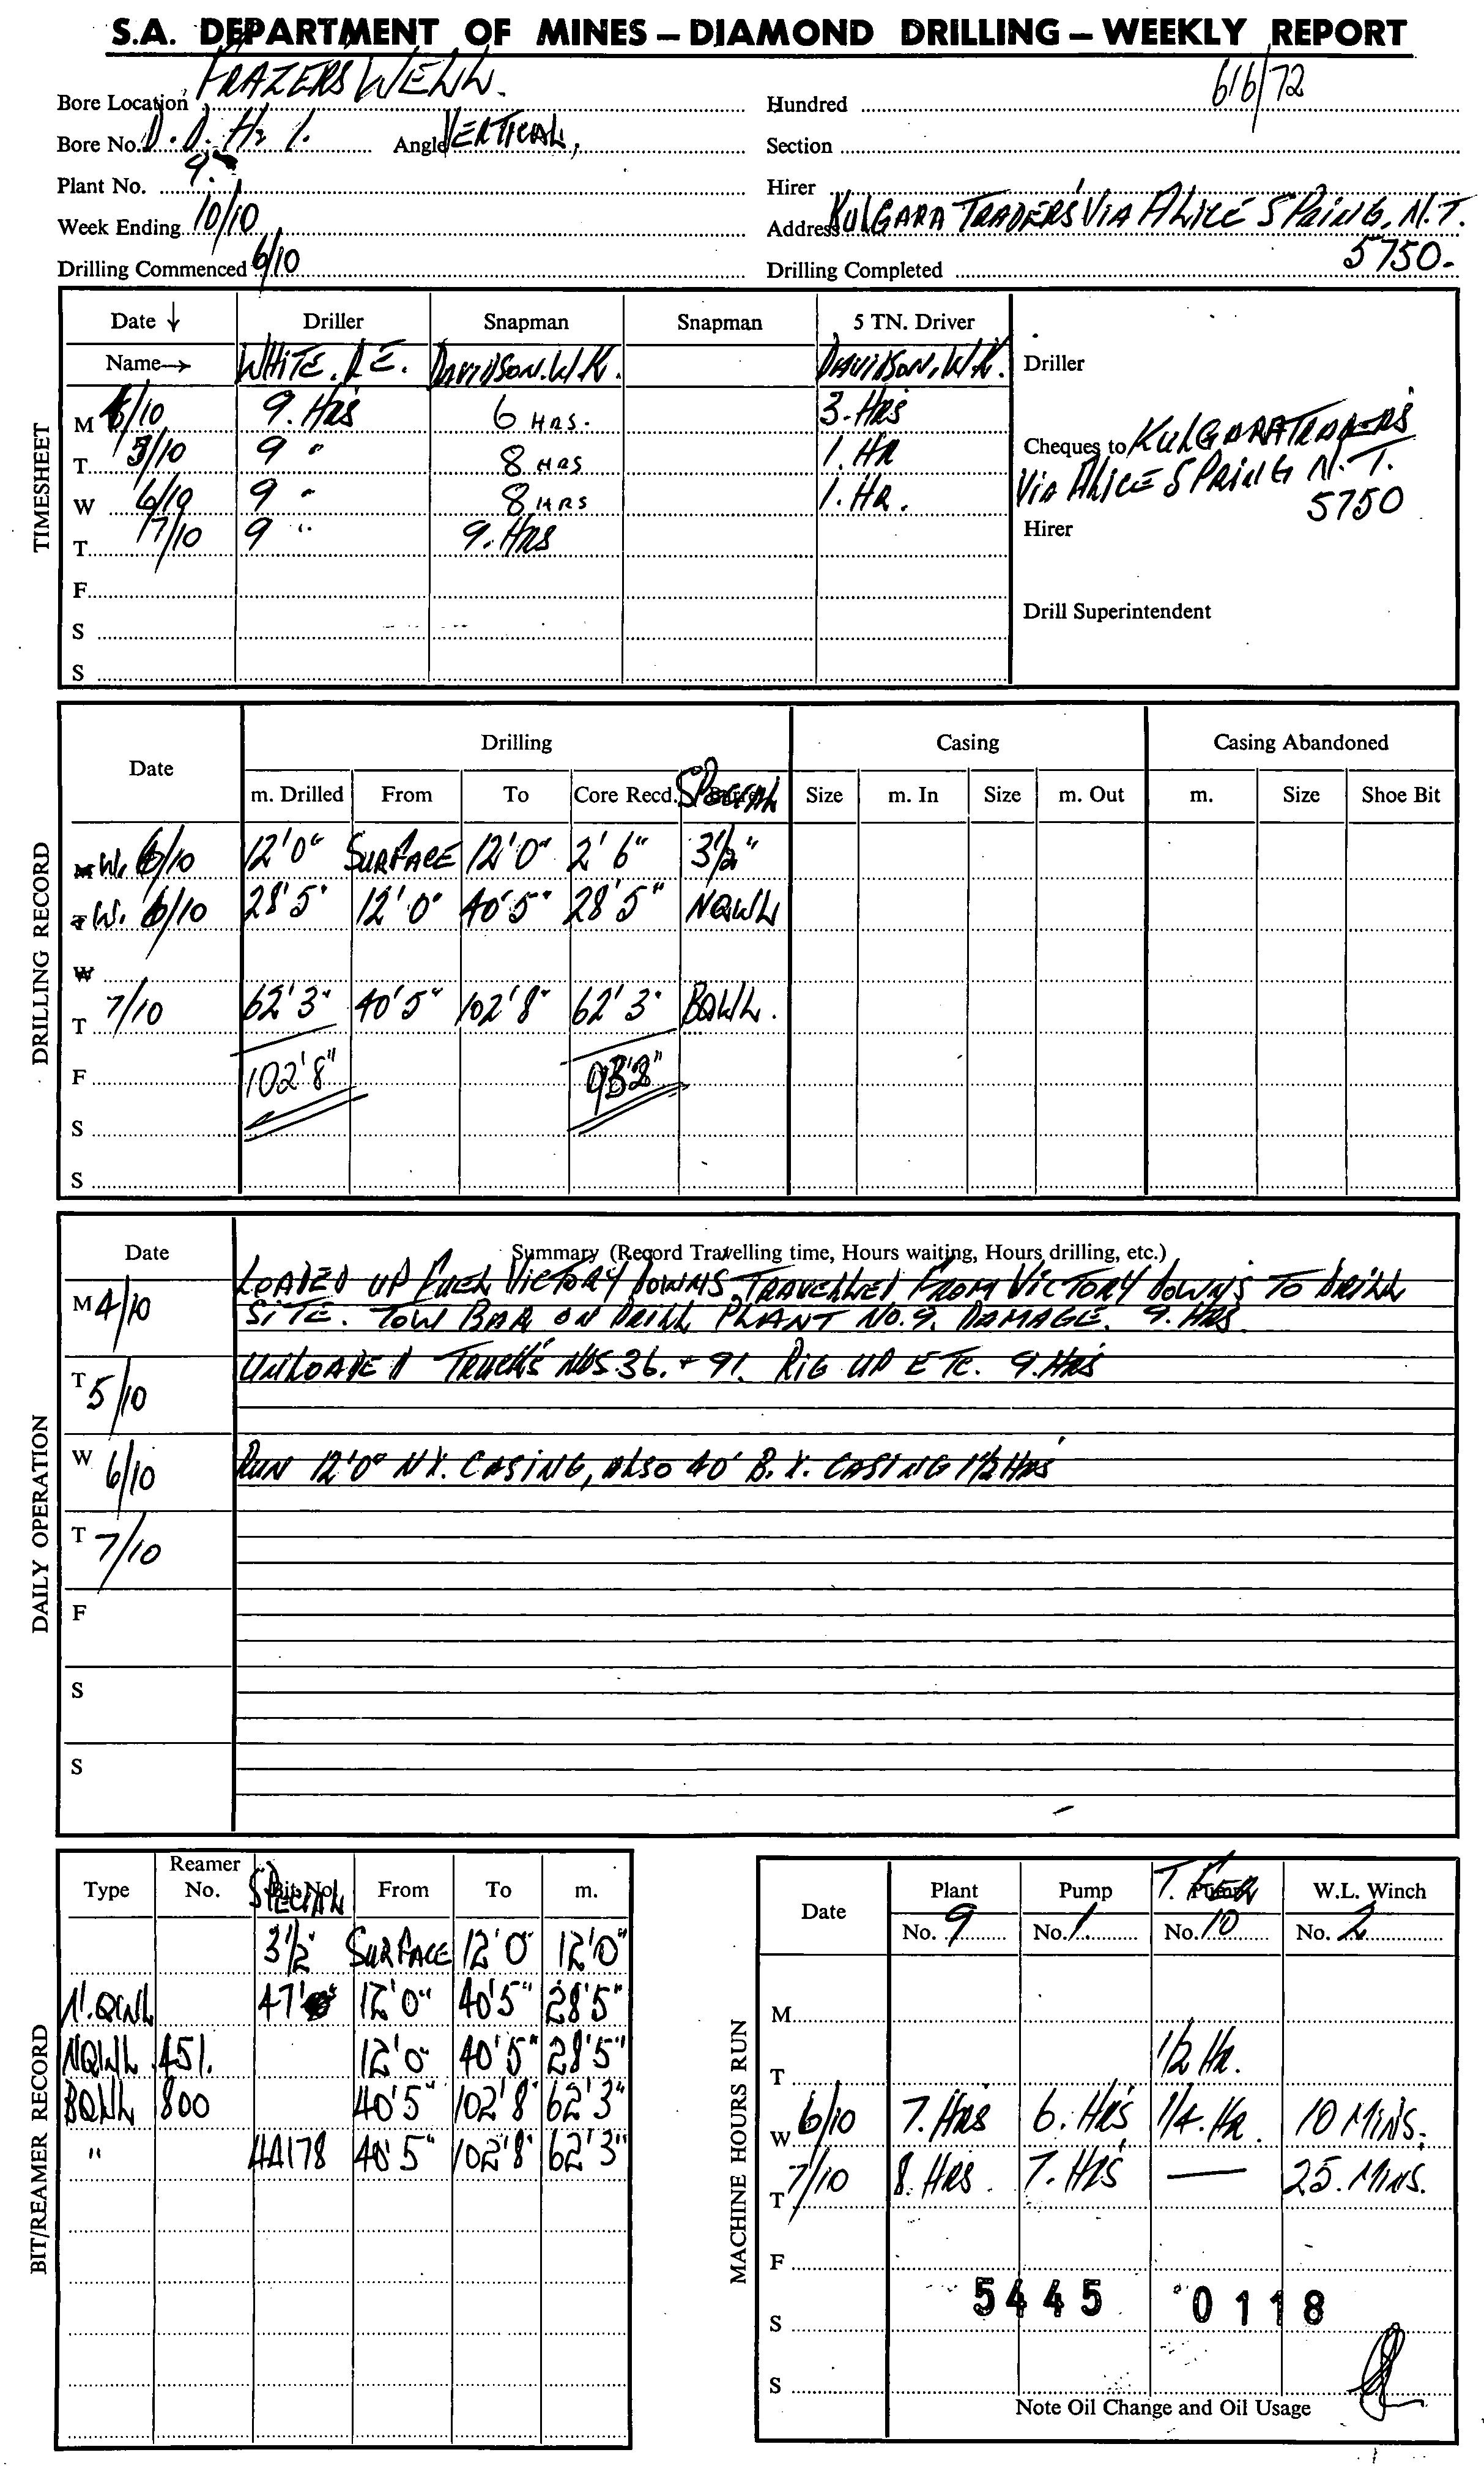 S.A. DEPARTMENT OF MINES – DIAMOND DRILLING – WEEKLY REPORT
Bore Location FRAZERS WELL. Hundred 6/6/72
Bore No. D.D.H. 1. Angle VERTICAL, Section
Plant No. 9. Hirer
Week Ending 10/10 Address KULGARA TRADERS VIA ALICE SPRING, N.T.
Drilling Commenced 6/10 Drilling Completed 5750-
TIMESHEET
Date ↓ Driller Snapman Snapman 5 TN. Driver
Name→ WHITE. R E. DAVIDSON. W K. DAVIDSON, W K. Driller
M 4/10 9. HRS 6 HRS. 3. HRS
T 5/10 9 " 8 HRS 1. HR Cheques to KULGARA TRADERS
W 6/10 9 " 8 HRS 1. HR. VIA ALICE SPRING N.T.
5750
T 7/10 9 " 9. HRS Hirer
F
Drill Superintendent
S
S
DRILLING RECORD
Date Drilling Casing Casing Abandoned
m. Drilled From To Core Recd. SPECIAL Size m. In Size m. Out m. Size Shoe Bit
W. 6/10 12'0" SURFACE 12'0" 2'6" 3½"
W. 6/10 28'5" 12'0" 40'5" 28'5" NQWL
W
T 7/10 62'3" 40'5" 102'8" 62'3" BQWL.
F 102'8"
S
S
DAILY OPERATION
Date Summary (Record Travelling time, Hours waiting, Hours drilling, etc.)
M 4/10 LOADED UP FUEL VICTORY DOWNS. TRAVELLED FROM VICTORY DOWNS TO DRILL
SITE. TOW BAR ON DRILL PLANT NO. 9. DAMAGE. 9. HRS.
T 5/10 UNLOADED TRUCKS NOS. 36. + 91. RIG UP ETC. 9. HRS
W 6/10 RUN 12'0" NX. CASING, ALSO 40' B.X. CASING 1½ HRS
T 7/10
F
S
S
BIT/REAMER RECORD
Type Reamer No. SPECIAL Bit No. From To m.
3½" SURFACE 12'0" 12'0"
N.QWL 12'0" 40'5" 28'5"
NQWL 451. 12'0" 40'5" 28'5"
BQWL 800 40'5" 102'8" 62'3"
" 4A178 40'5" 102'8" 62'3"
MACHINE HOURS RUN
Date Plant Pump T. FER W.L. Winch
No. 9 No. 1 No. 10 No. 2
M
T ½ HR.
W 6/10 7. HRS 6. HRS 1/4. HR. 10 MINS.
T 7/10 8. HRS. 7. HRS — 25. MINS.
F
5445 0118
S
S
Note Oil Change and Oil Usage